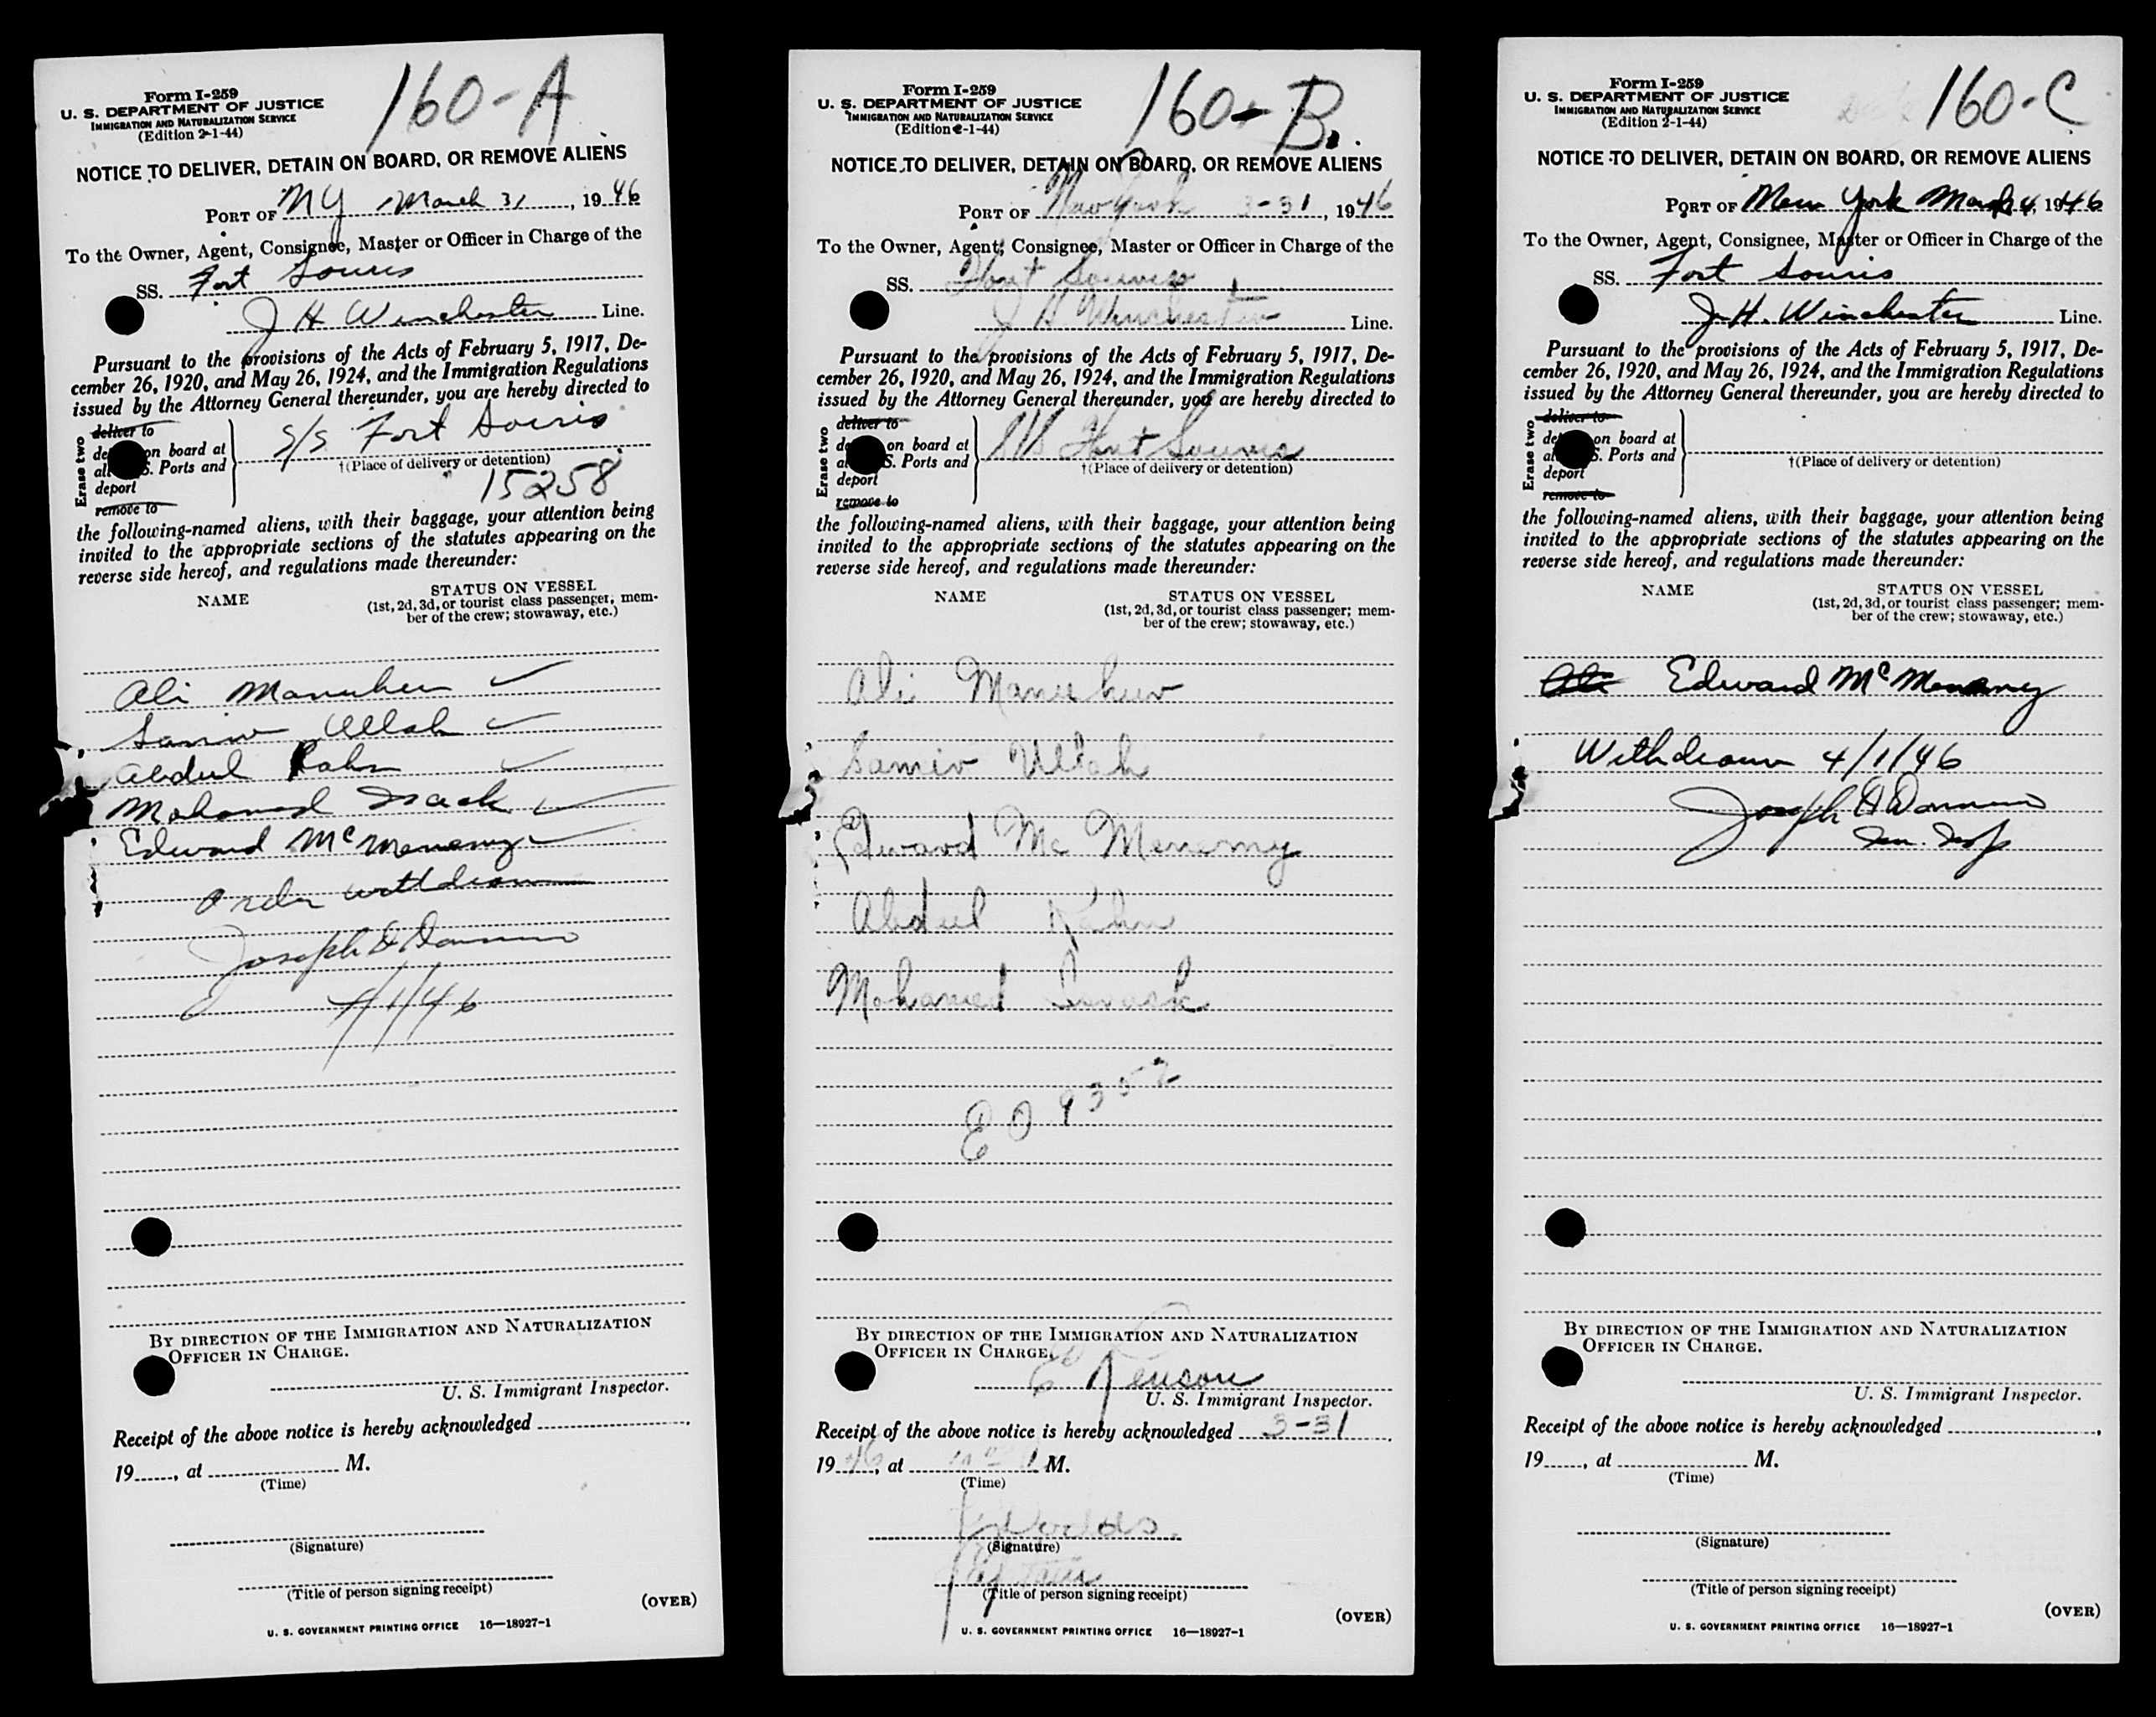 160-A
Form I-259
U. S. DEPARTMENT OF JUSTICE
IMMIGRATION AND NATURALIZATION SERVICE
(Edition 2-1-44)
NOTICE TO DELIVER, DETAIN ON BOARD, OR REMOVE ALIENS
PORT OF NY March 31, 1946
To the Owner, Agent, Consignee, Master or Officer in Charge of the
SS. Fort Souris
J H Winchester Line.
Pursuant to the provisions of the Acts of February 5, 1917, De-
cember 26, 1920, and May 26, 1924, and the Immigration Regulations
issued by the Attorney General thereunder, you are hereby directed to
Erase two
deliver to
on board at
S. Ports and
deport
remove to
S/S Fort Souris
†(Place of delivery or detention)
15258
the following-named aliens, with their baggage, your attention being
invited to the appropriate sections of the statutes appearing on the
reverse side hereof, and regulations made thereunder:
NAME
STATUS ON VESSEL
(1st, 2d, 3d, or tourist class passenger; mem-
ber of the crew; stowaway, etc.)
Ali ✓
Ullah ✓
Abdul Rahn ✓
Mohamed ✓
Edward McMenemy ✓
Order withdrawn
Joseph
4/1/46
BY DIRECTION OF THE IMMIGRATION AND NATURALIZATION
OFFICER IN CHARGE.
U. S. Immigrant Inspector.
Receipt of the above notice is hereby acknowledged
19......, at M.
(Time)
(Signature)
(Title of person signing receipt)
(OVER)
U. S. GOVERNMENT PRINTING OFFICE 16—18927-1
160-B.
Form I-259
U. S. DEPARTMENT OF JUSTICE
IMMIGRATION AND NATURALIZATION SERVICE
(Edition 2-1-44)
NOTICE TO DELIVER, DETAIN ON BOARD, OR REMOVE ALIENS
PORT OF New York 3-31, 1946
To the Owner, Agent, Consignee, Master or Officer in Charge of the
SS. Fort Souris
J H Winchester Line.
Pursuant to the provisions of the Acts of February 5, 1917, De-
cember 26, 1920, and May 26, 1924, and the Immigration Regulations
issued by the Attorney General thereunder, you are hereby directed to
Erase two
deliver to
on board at
S. Ports and
deport
remove to
S/S Fort Souris
†(Place of delivery or detention)
the following-named aliens, with their baggage, your attention being
invited to the appropriate sections of the statutes appearing on the
reverse side hereof, and regulations made thereunder:
NAME
STATUS ON VESSEL
(1st, 2d, 3d, or tourist class passenger; mem-
ber of the crew; stowaway, etc.)
Ali
Ullah
Edward McMenemy
Abdul Rahn
Mohamed
EO 9352
BY DIRECTION OF THE IMMIGRATION AND NATURALIZATION
OFFICER IN CHARGE.
U. S. Immigrant Inspector.
Receipt of the above notice is hereby acknowledged 3-31
1946, at M.
(Time)
(Signature)
(Title of person signing receipt)
(OVER)
U. S. GOVERNMENT PRINTING OFFICE 16—18927-1
160-C
Form I-259
U. S. DEPARTMENT OF JUSTICE
IMMIGRATION AND NATURALIZATION SERVICE
(Edition 2-1-44)
NOTICE TO DELIVER, DETAIN ON BOARD, OR REMOVE ALIENS
PORT OF New York 1946
To the Owner, Agent, Consignee, Master or Officer in Charge of the
SS. Fort Souris
J. H. Winchester Line.
Pursuant to the provisions of the Acts of February 5, 1917, De-
cember 26, 1920, and May 26, 1924, and the Immigration Regulations
issued by the Attorney General thereunder, you are hereby directed to
Erase two
deliver to
on board at
S. Ports and
deport
remove to
†(Place of delivery or detention)
the following-named aliens, with their baggage, your attention being
invited to the appropriate sections of the statutes appearing on the
reverse side hereof, and regulations made thereunder:
NAME
STATUS ON VESSEL
(1st, 2d, 3d, or tourist class passenger; mem-
ber of the crew; stowaway, etc.)
Ali Edward McMenemy
Withdrawn 4/1/46
Joseph
Imm. Insp
BY DIRECTION OF THE IMMIGRATION AND NATURALIZATION
OFFICER IN CHARGE.
U. S. Immigrant Inspector.
Receipt of the above notice is hereby acknowledged
19......, at M.
(Time)
(Signature)
(Title of person signing receipt)
(OVER)
U. S. GOVERNMENT PRINTING OFFICE 16—18927-1